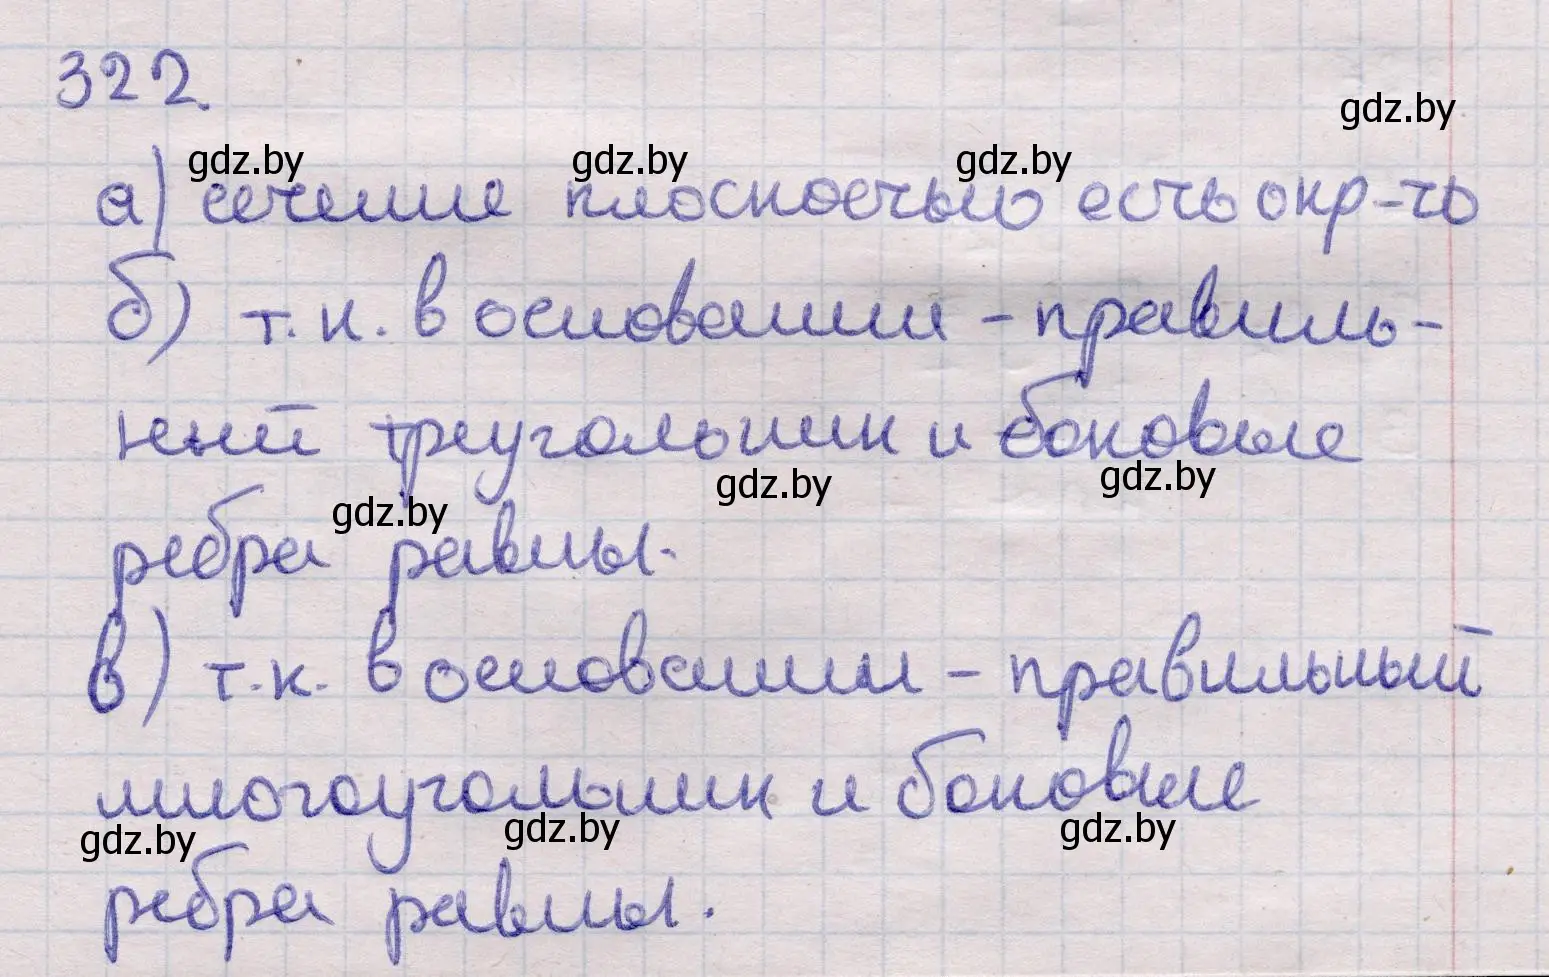 322.
gdz.by
gdz.by gdz.by gdz.by
а) сечение плоскостью есть окр-ть
б) т.к. в основании - правиль-
ный треугольник и боковые
gdz.by gdz.by gdz.by
ребра равны.
в) т.к. в основании - правильный
многоугольник и боковые
gdz.by gdz.by gdz.by
ребра равны.